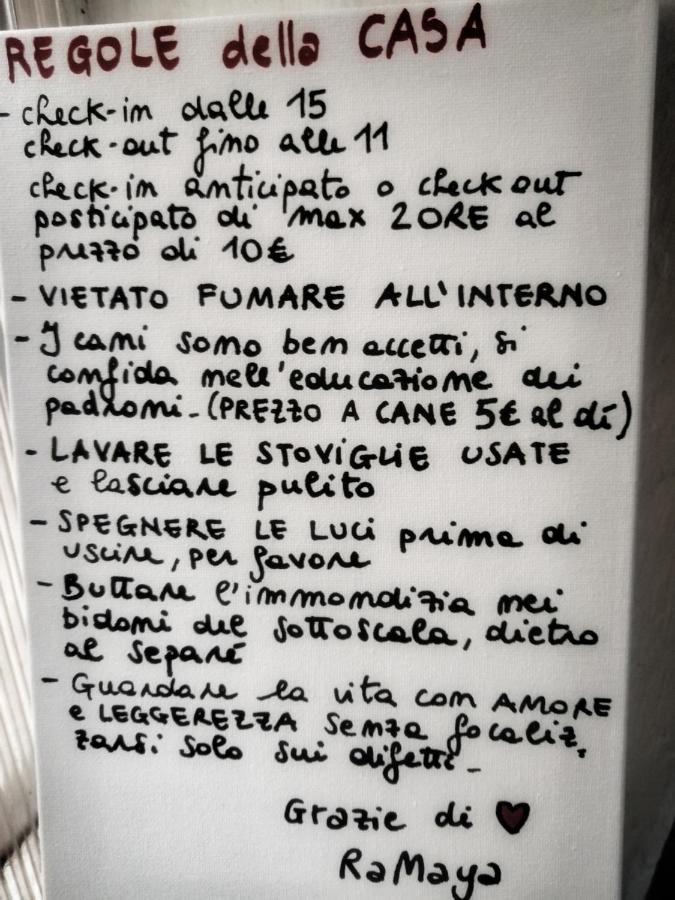 REGOLE della CASA
- check-in dalle 15
check-out fino alle 11
check-in anticipato o check out
posticipato di max 2 ORE al
prezzo di 10€
- VIETATO FUMARE ALL'INTERNO
- I cani sono ben accetti, si
confida nell'educazione dei
padroni - (PREZZO A CANE 5€ al dì)
- LAVARE LE STOVIGLIE USATE
e lasciare pulito
- SPEGNERE LE LUCi prima di
uscire, per favore
- Buttare l'immondizia nei
bidoni del sottoscala, dietro
al separé
- Guardare la vita con AMORE
e LEGGEREZZA senza focaliz.
zarsi solo sui difetti -
Grazie di ♥
RaMaya